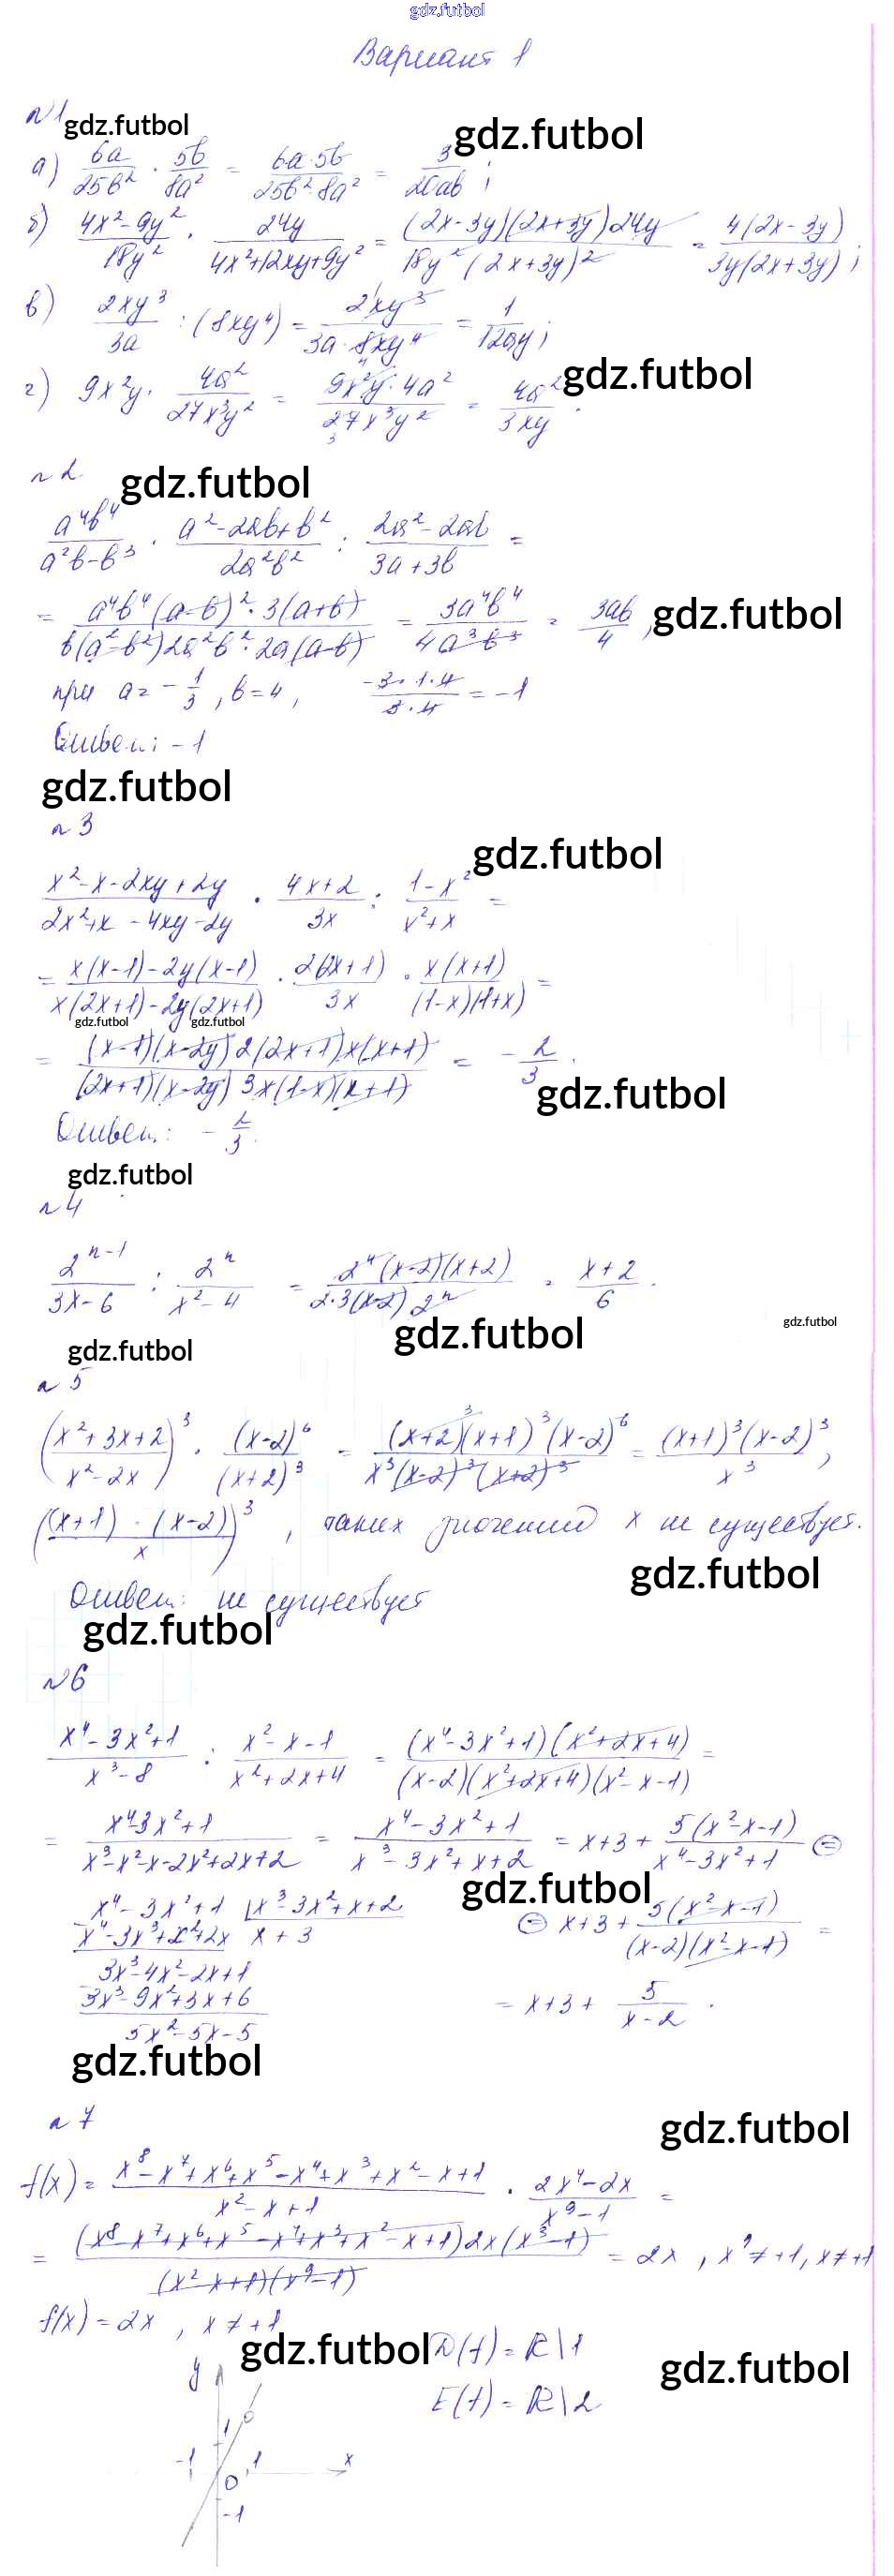 gdz.futbol
Вариант 1
№1 gdz.futbol gdz.futbol
а) 6a/25b² · 5b/8a² = 6a·5b/25b²·8a² = 3/20ab ;
б) 4x²-9y²/18y² · 24y/4x²+12xy+9y² = (2x-3y)(2x+3y)24y/18y²(2x+3y)² = 4(2x-3y)/3y(2x+3y) ;
в) 2xy³/3a : (8xy⁴) = 2xy³/3a·8xy⁴ = 1/12ay ;
г) 9x²y · 4a²/27x³y² = 9x²y·4a²/27x³y² = 4a²/3xy . gdz.futbol
№2 gdz.futbol
a⁴b⁴/a²b-b³ · a²-2ab+b²/2a²b² : 2a²-2ab/3a+3b =
= a⁴b⁴(a-b)²·3(a+b)/b(a²-b²)2a²b²·2a(a-b) = 3a⁴b⁴/4a³b³ = 3ab/4 , gdz.futbol
при a = -1/3 , b = 4 , -3·1·4/3·4 = -1
Ответ: -1
gdz.futbol
№3
gdz.futbol
x²-x-2xy+2y/2x²+x-4xy-2y · 4x+2/3x : 1-x²/x²+x =
= x(x-1)-2y(x-1)/x(2x+1)-2y(2x+1) · 2(2x+1)/3x · x(x+1)/(1-x)(1+x) =
gdz.futbol gdz.futbol
= (x-1)(x-2y)2(2x+1)x(x+1)/(2x+1)(x-2y)3x(1-x)(x+1) = -2/3 .
gdz.futbol
Ответ: -2/3.
gdz.futbol
№4
2ⁿ⁻¹/3x-6 : 2ⁿ/x²-4 = 2ⁿ(x-2)(x+2)/2·3(x-2)2ⁿ = x+2/6 .
gdz.futbol gdz.futbol
gdz.futbol
№5
(x²+3x+2/x²-2x)³ · (x-2)⁶/(x+2)³ = (x+2)³(x+1)³(x-2)⁶/x³(x-2)³(x+2)³ = (x+1)³(x-2)³/x³ ,
((x+1)·(x-2)/x)³ , таких значений x не существует.
gdz.futbol
Ответ: не существует
gdz.futbol
№6
x⁴-3x²+1/x³-8 : x²-x-1/x²+2x+4 = (x⁴-3x²+1)(x²+2x+4)/(x-2)(x²+2x+4)(x²-x-1) =
= x⁴-3x²+1/x³-x²-x-2x²+2x+2 = x⁴-3x²+1/x³-3x²+x+2 = x+3+ 5(x²-x-1)/x⁴-3x²+1 ⊜
gdz.futbol
x⁴-3x²+1 | x³-3x²+x+2
x⁴-3x³+x²+2x x+3
⊜ x+3+ 5(x²-x-1)/(x-2)(x²-x-1) =
3x³-4x²-2x+1
3x³-9x²+3x+6
= x+3+ 5/x-2 .
5x²-5x-5
gdz.futbol
№7 gdz.futbol
f(x) = x⁸-x⁷+x⁶+x⁵-x⁴+x³+x²-x+1/x²-x+1 · 2x⁴-2x/x⁹-1 =
= (x⁸-x⁷+x⁶+x⁵-x⁴+x³+x²-x+1)2x(x³-1)/(x²-x+1)(x⁹-1) = 2x , x⁹≠+1, x≠+1
f(x) = 2x , x≠+1
gdz.futbol D(f) = R\1
gdz.futbol
E(f) = R\2
y
1
-1 1 x
0
-1